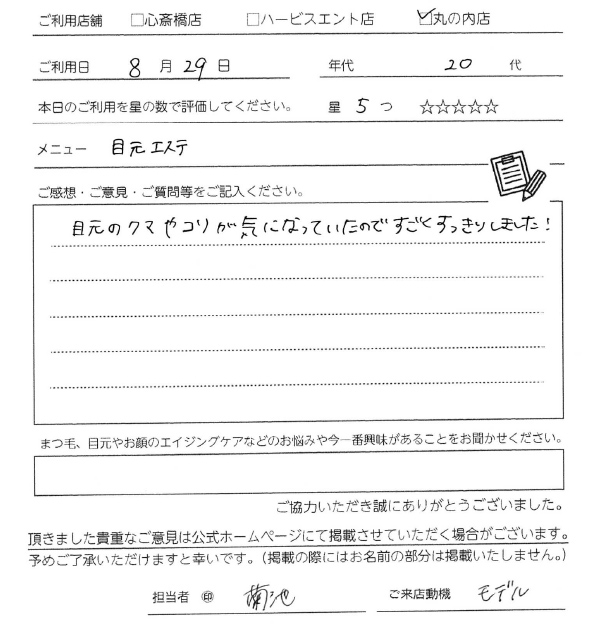 ご利用店舗 □心斎橋店 □ハービスエント店 ☑丸の内店
ご利用日 8 月 29 日 年代 20 代
本日のご利用を星の数で評価してください。 星 5 つ ☆☆☆☆☆
メニュー 目元エステ
ご感想・ご意見・ご質問等をご記入ください。
目元のクマやコリが気になっていたのですごくすっきりしました!
まつ毛、目元やお顔のエイジングケアなどのお悩みや今一番興味があることをお聞かせください。
ご協力いただき誠にありがとうございました。
頂きました貴重なご意見は公式ホームページにて掲載させていただく場合がございます。
予めご了承いただけますと幸いです。(掲載の際にはお名前の部分は掲載いたしません。)
担当者 ㊞ 菊池 ご来店動機 モデル